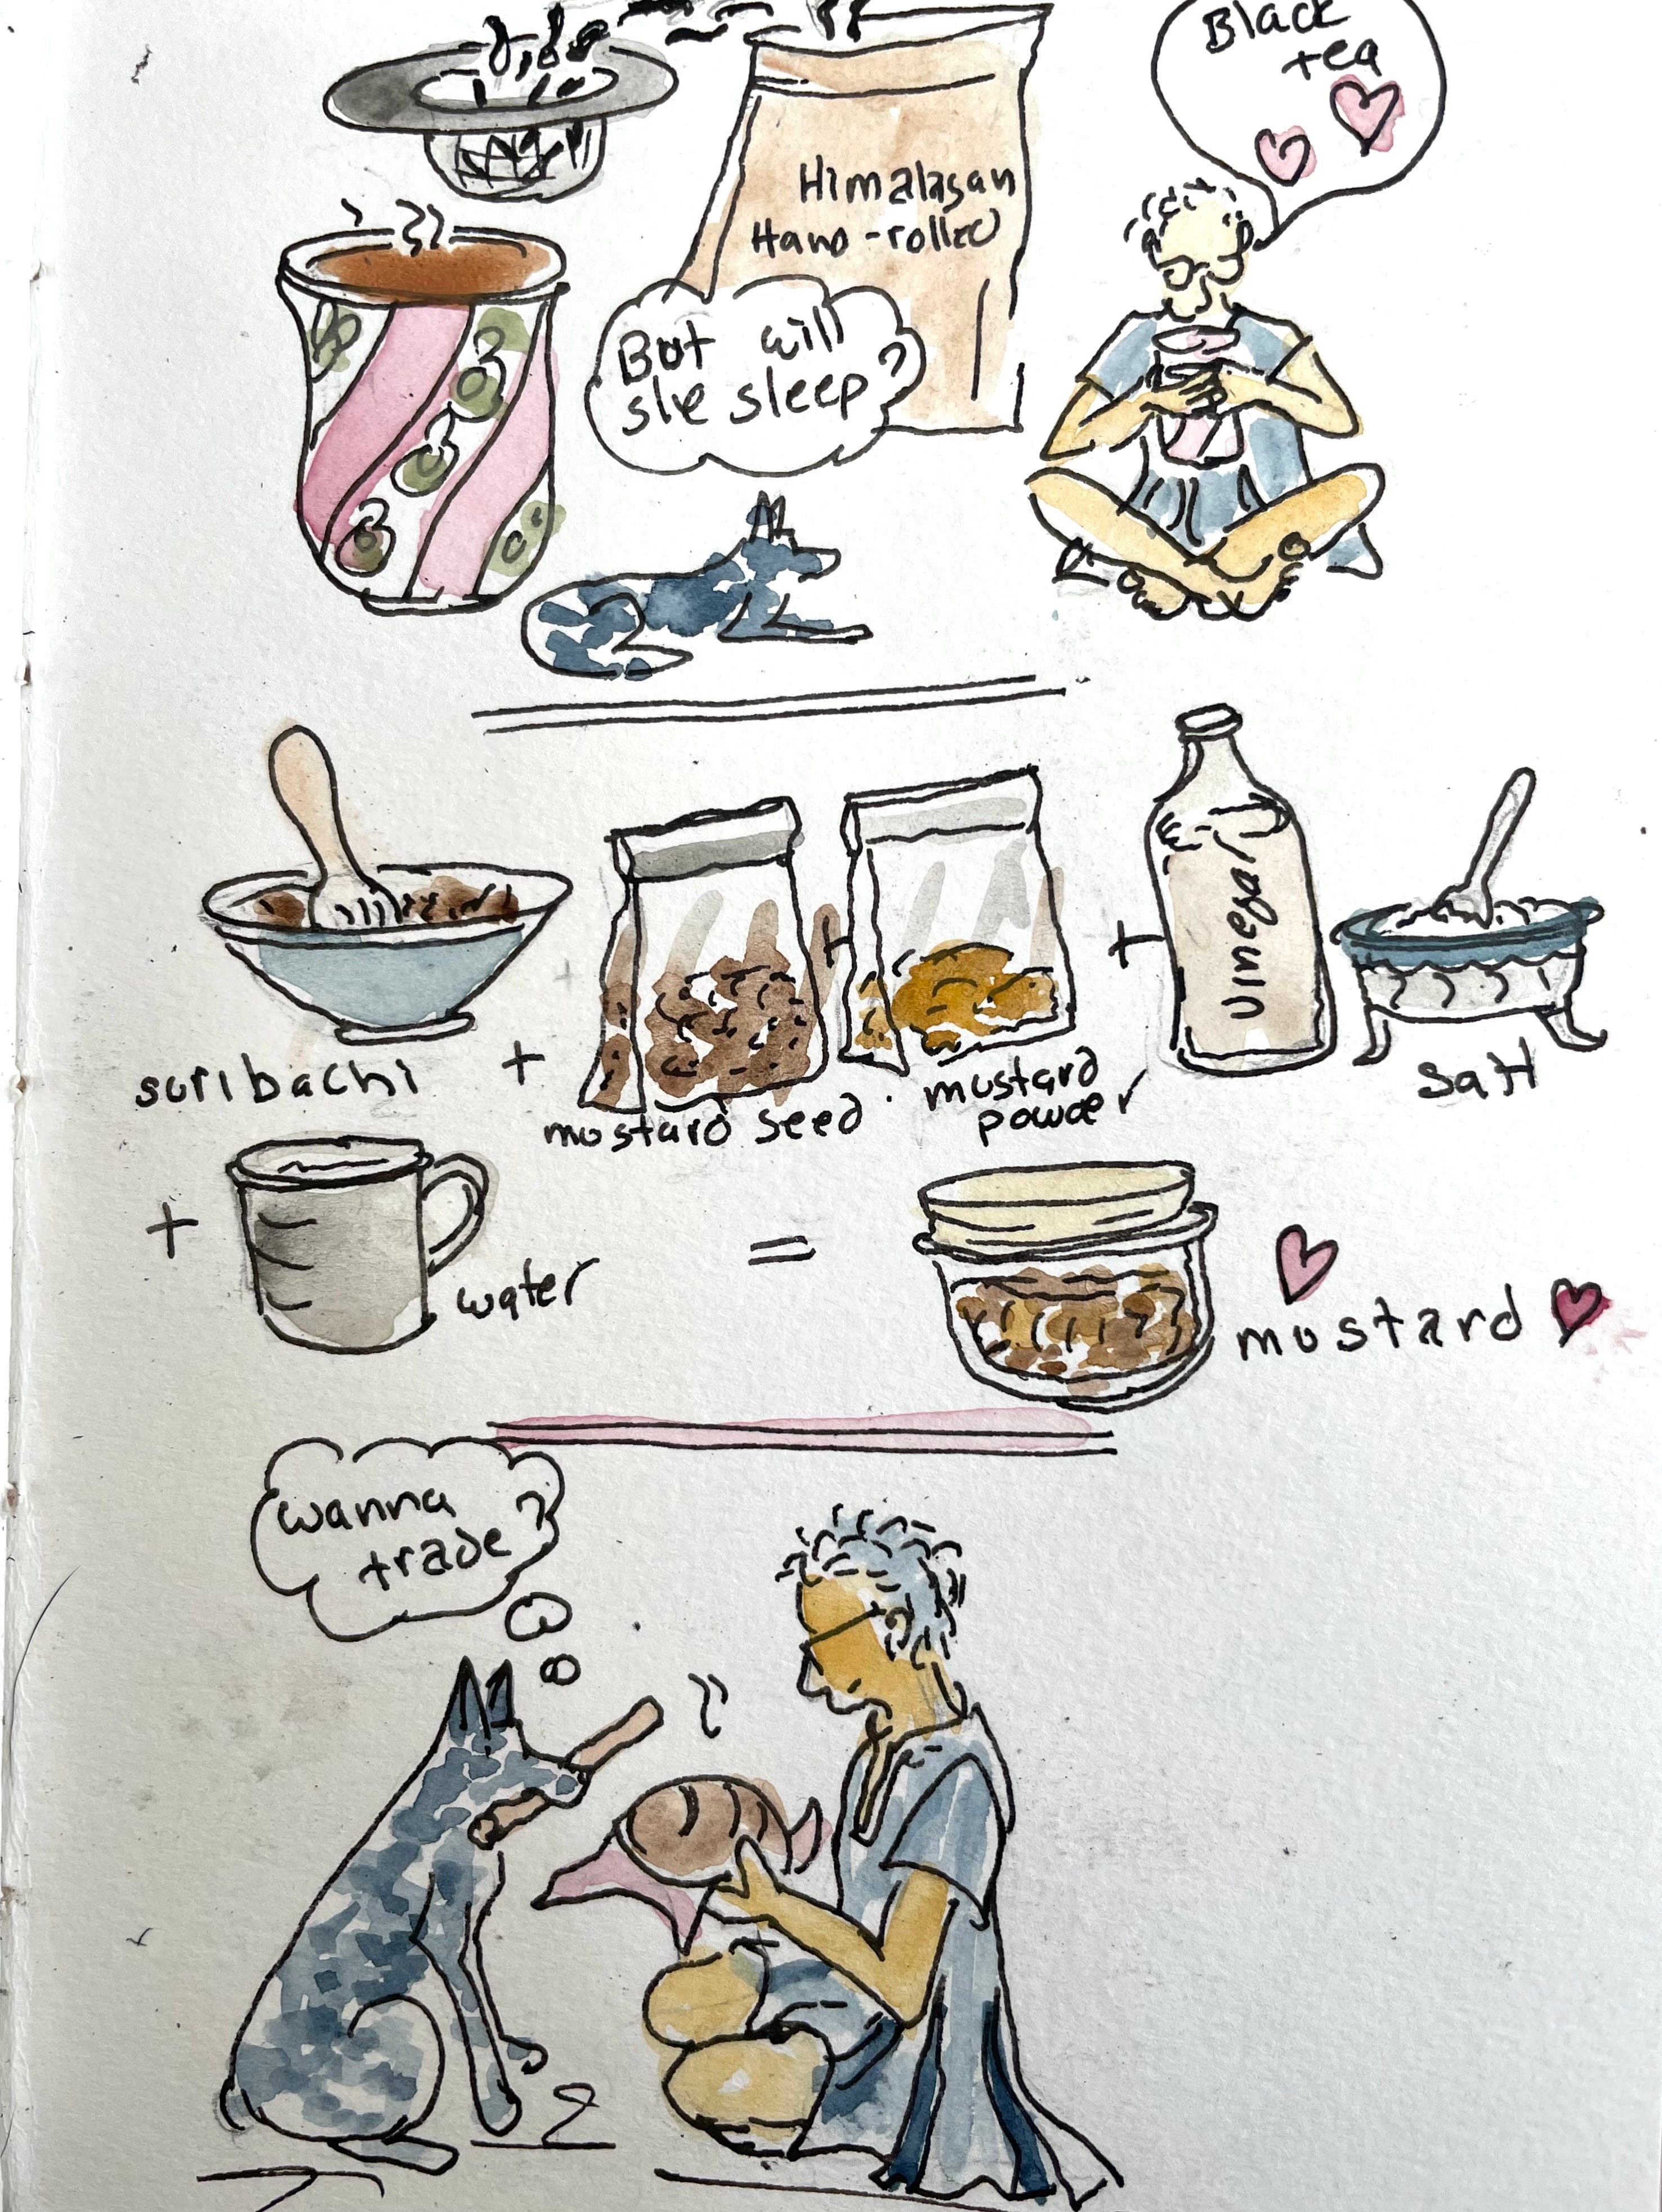 Black
tea
Himalayan
Hand-rolled
But will
she sleep?
suribachi
+
mustard seed
+
mustard
powder
+
Vinegar
salt
+
water
=
mustard
wanna
trade?